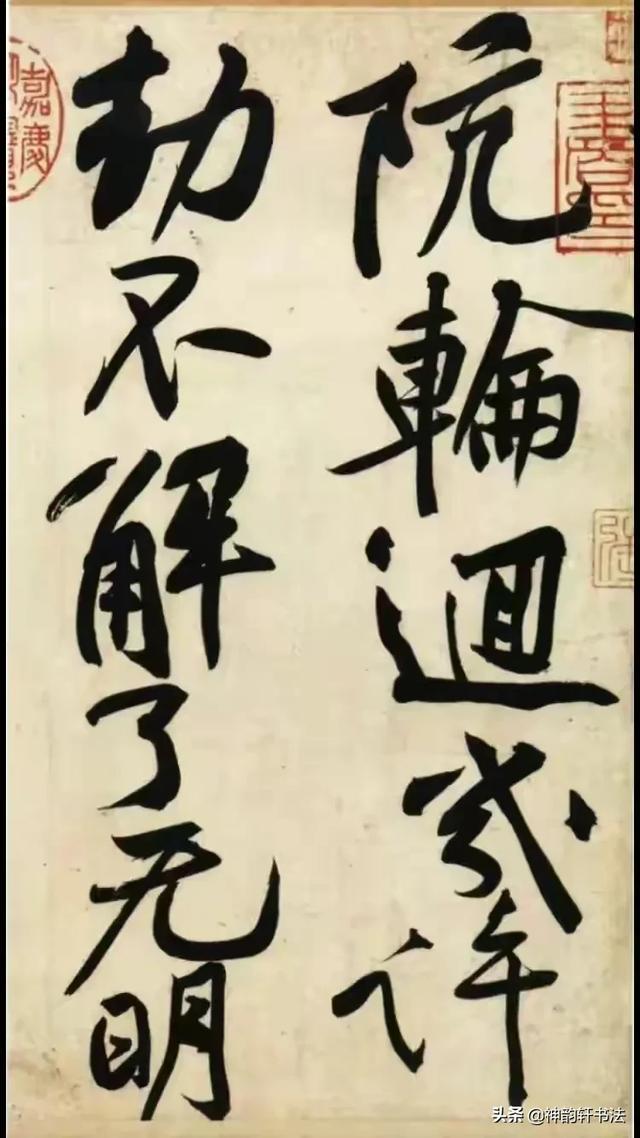 阬輪迴幾許
劫不解了无明
嘉慶
头条 @神韵轩书法